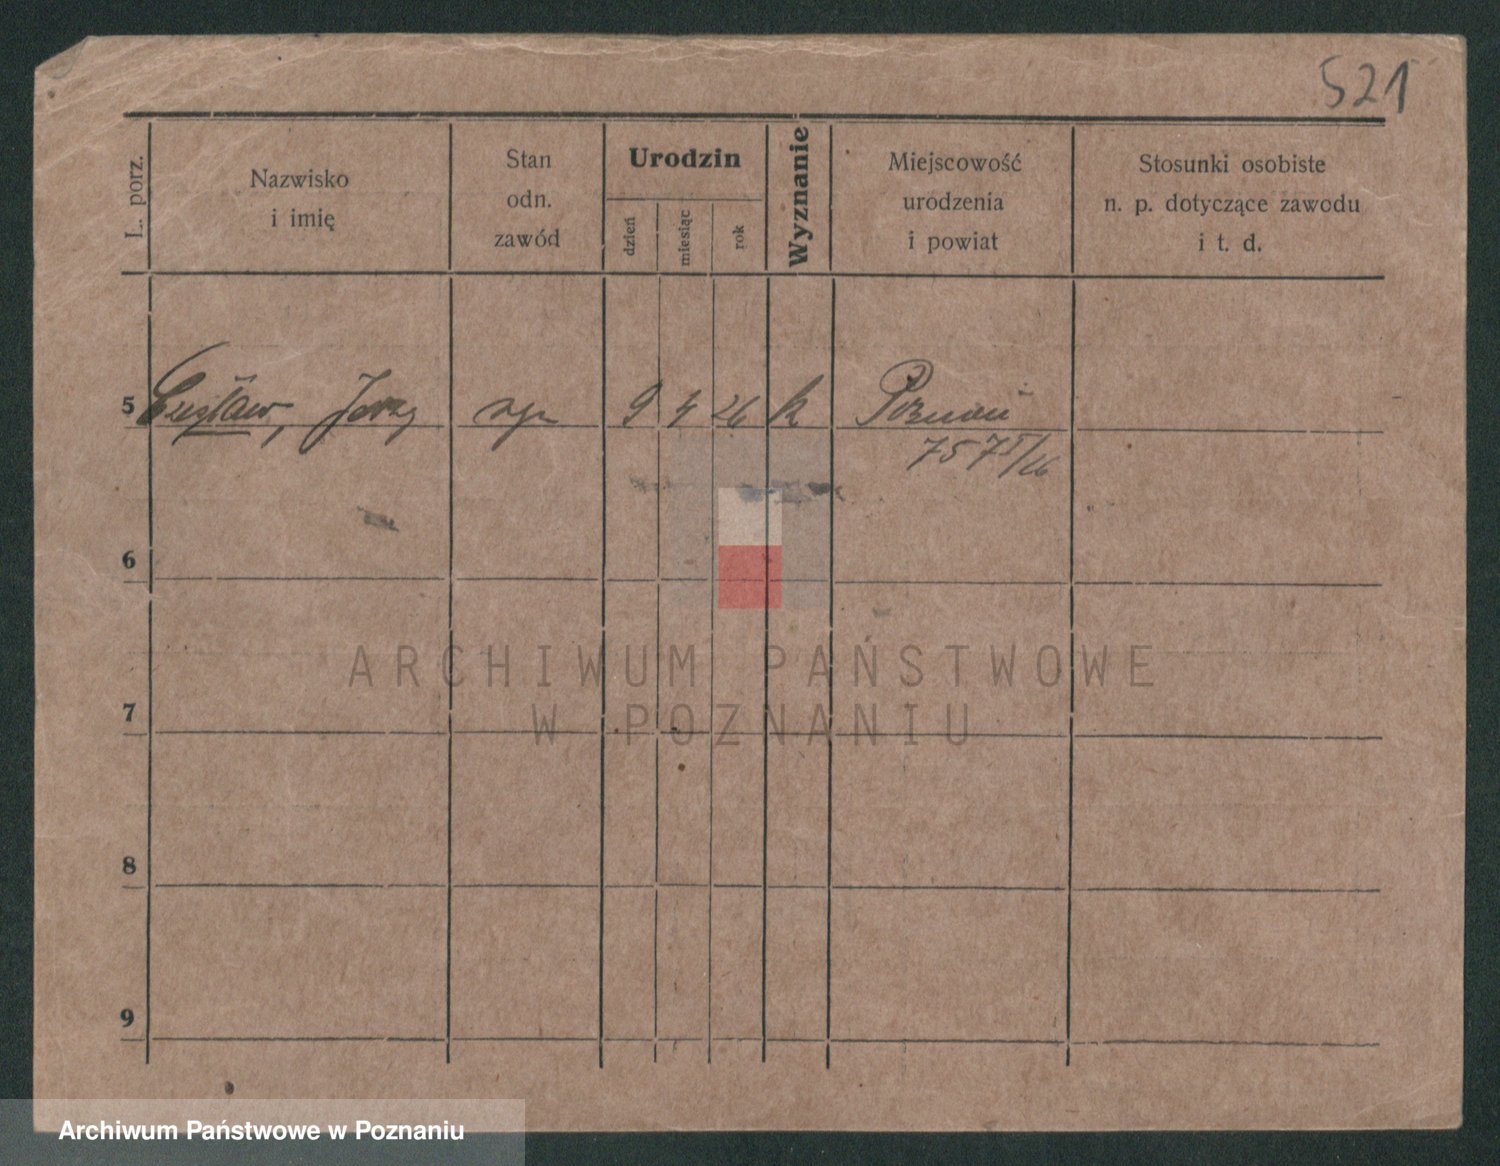 521
L. porz.
Nazwisko
i imię
Stan
odn.
zawód
Urodzin
dzień
miesiąc
rok
Wyznanie
Miejscowość
urodzenia
i powiat
Stosunki osobiste
n. p. dotyczące zawodu
i t. d.
5 Czesław, Jerzy 9 4 26 k Poznań
6
ARCHIWUM PAŃSTWOWE
W POZNANIU
7
8
9
Archiwum Państwowe w Poznaniu